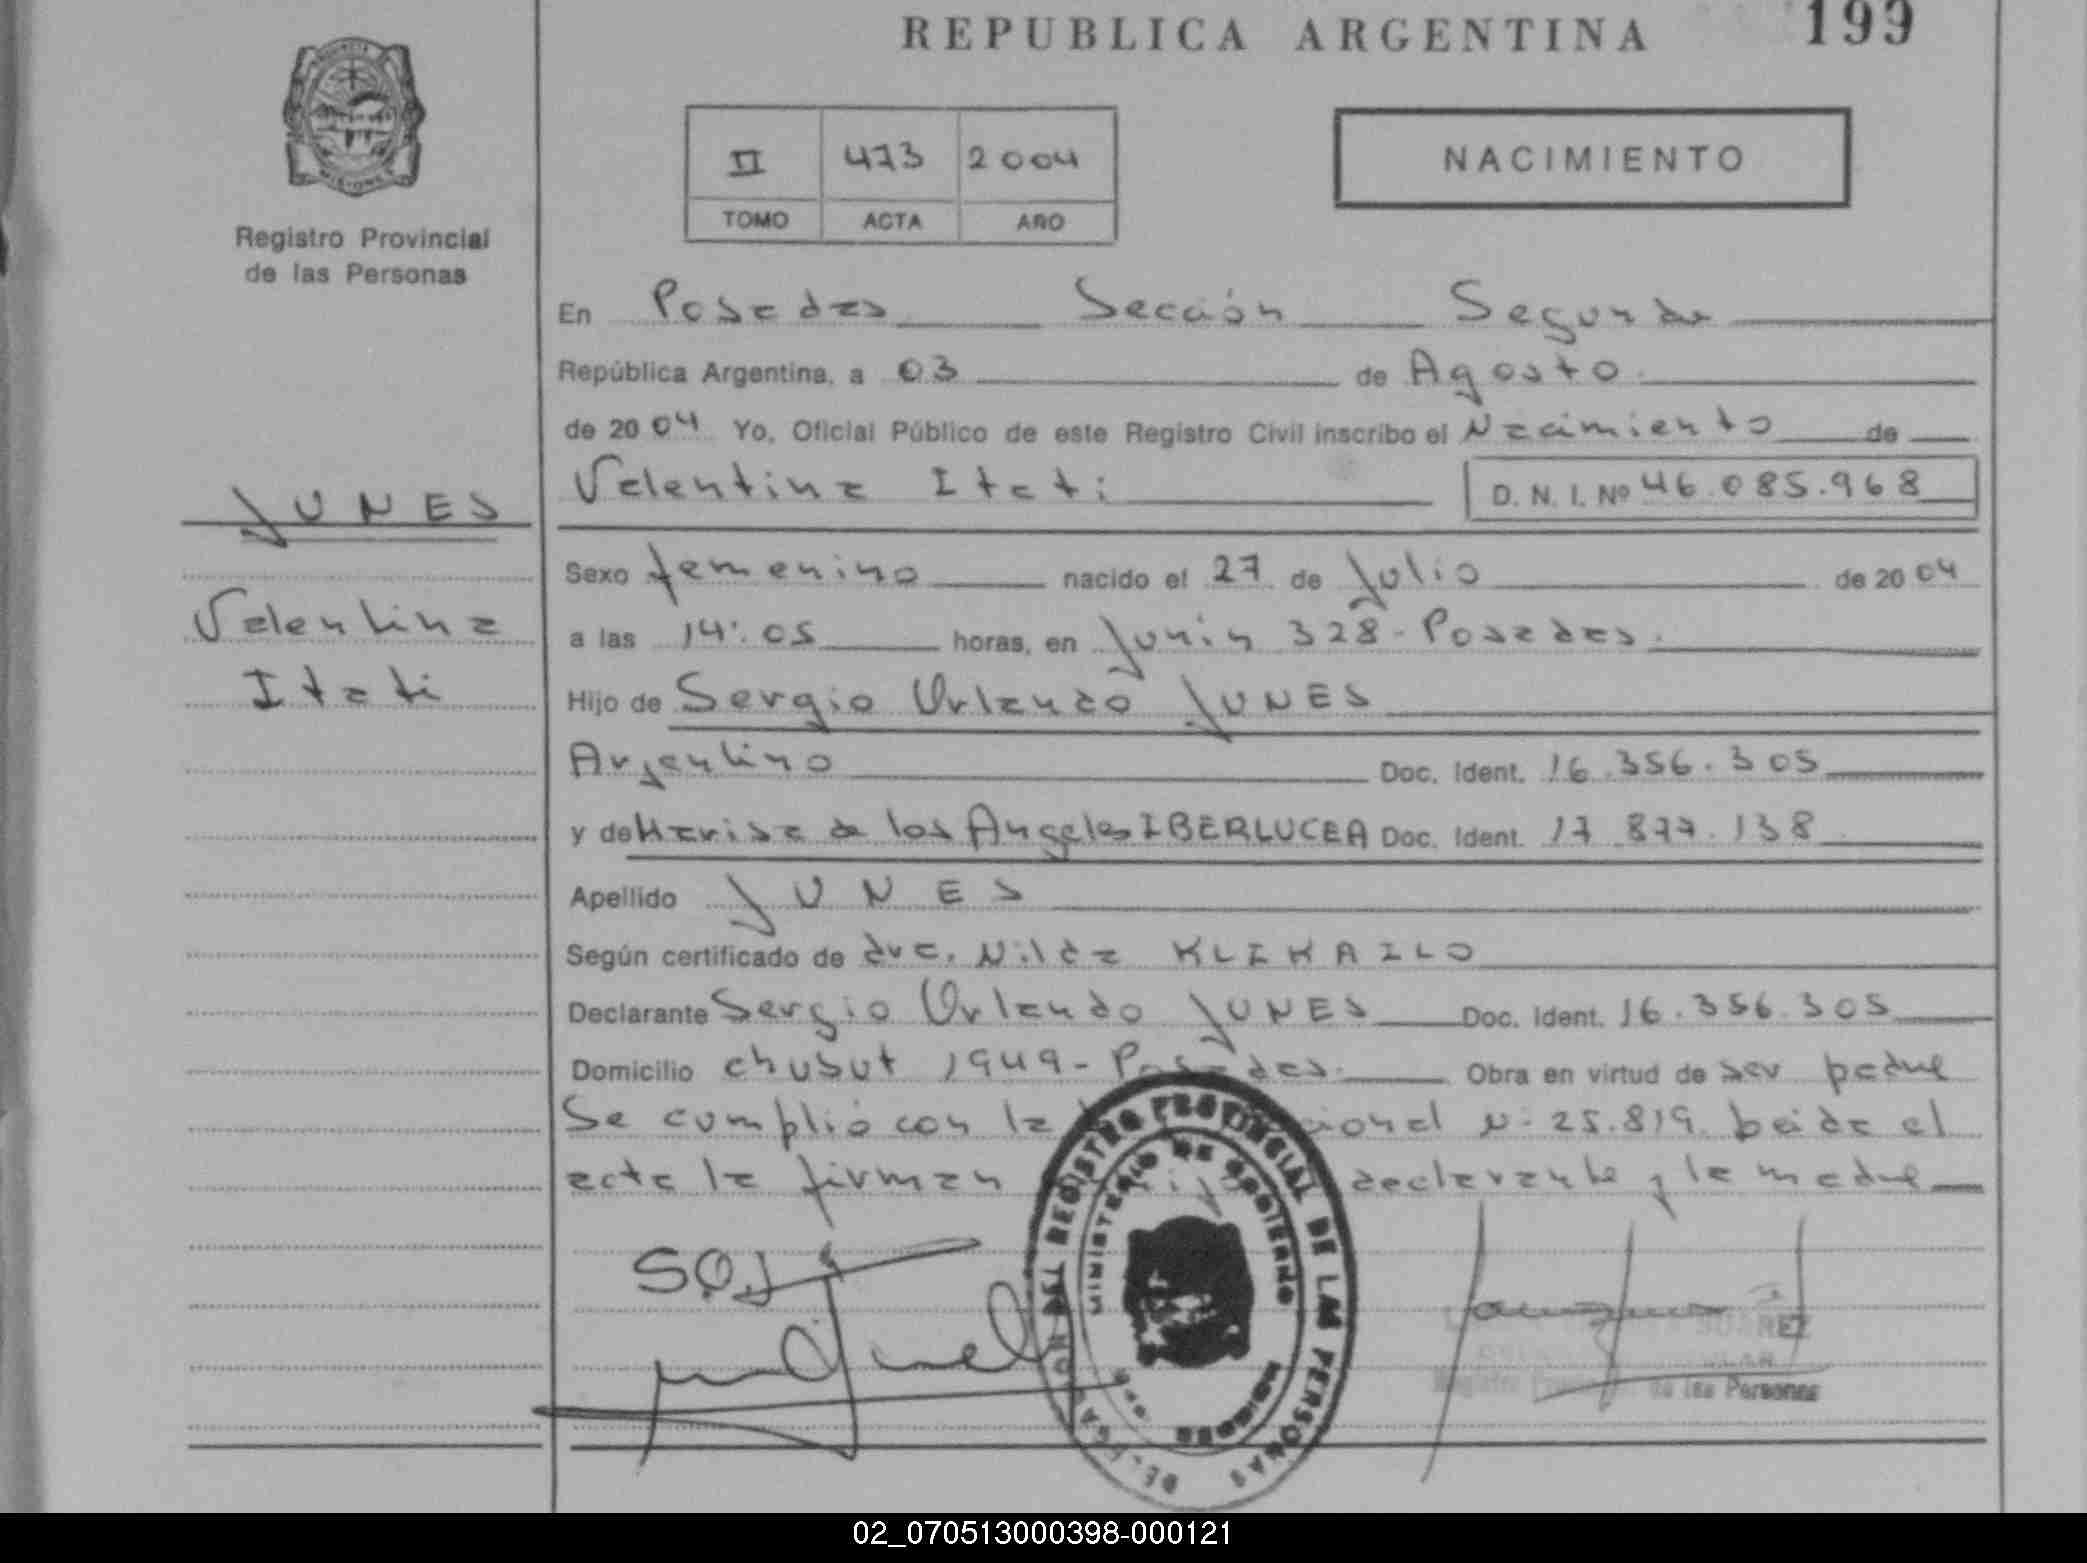 REPUBLICA ARGENTINA 199
PROVINCIA
MISIONES
Registro Provincial
de las Personas
II 473 2004
TOMO ACTA AÑO
NACIMIENTO
En Posadas Sección Segunda
República Argentina, a 03 de Agosto
de 2004 Yo, Oficial Público de este Registro Civil inscribo el Nacimiento de
Valentina Itati D. N. I. Nº 46.085.968
JUNES
Valentina
Itati
Sexo femenino nacido el 27 de Julio de 2004
a las 14:05 horas, en Junin 328 - Posadas.
Hijo de Sergio Orlando JUNES
Argentino Doc. Ident. 16.356.305
y de Marisa de los Angeles IBERLUCEA Doc. Ident. 17.877.138
Apellido JUNES
Según certificado de dra. Nilda KLEKAILO
Declarante Sergio Orlando JUNES Doc. Ident. 16.356.305
Domicilio chubut 1949 - Posadas. Obra en virtud de ser padre
Se cumplió con la cional N: 25.819. Leida el
acta la firman declarante y la madre
REGISTRO PROVINCIAL DE LAS PERSONAS
MINISTERIO DE GOBIERNO
SUAREZ
de las Personas
02_070513000398-000121